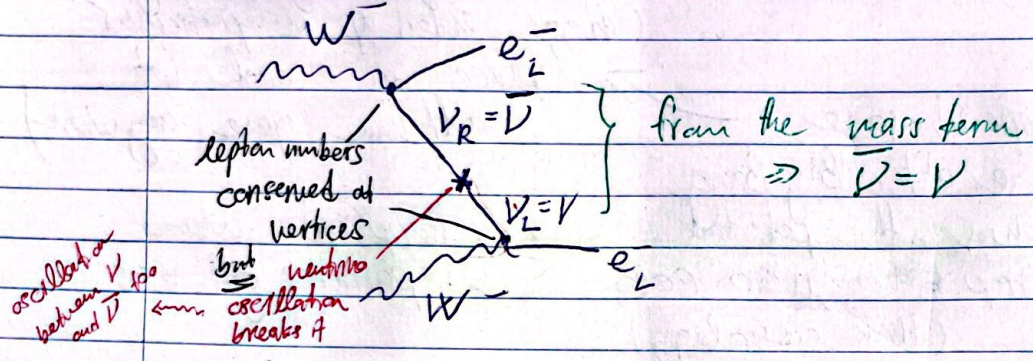 W⁻
e⁻_L
ν_R = ν̄
from the mass term
⇒ ν̄ = ν
lepton numbers
conserved at
vertices
ν_L = ν
but neutrino
oscillation
breaks it
e⁻_L
W⁻
oscillation
between ν
and ν̄ too